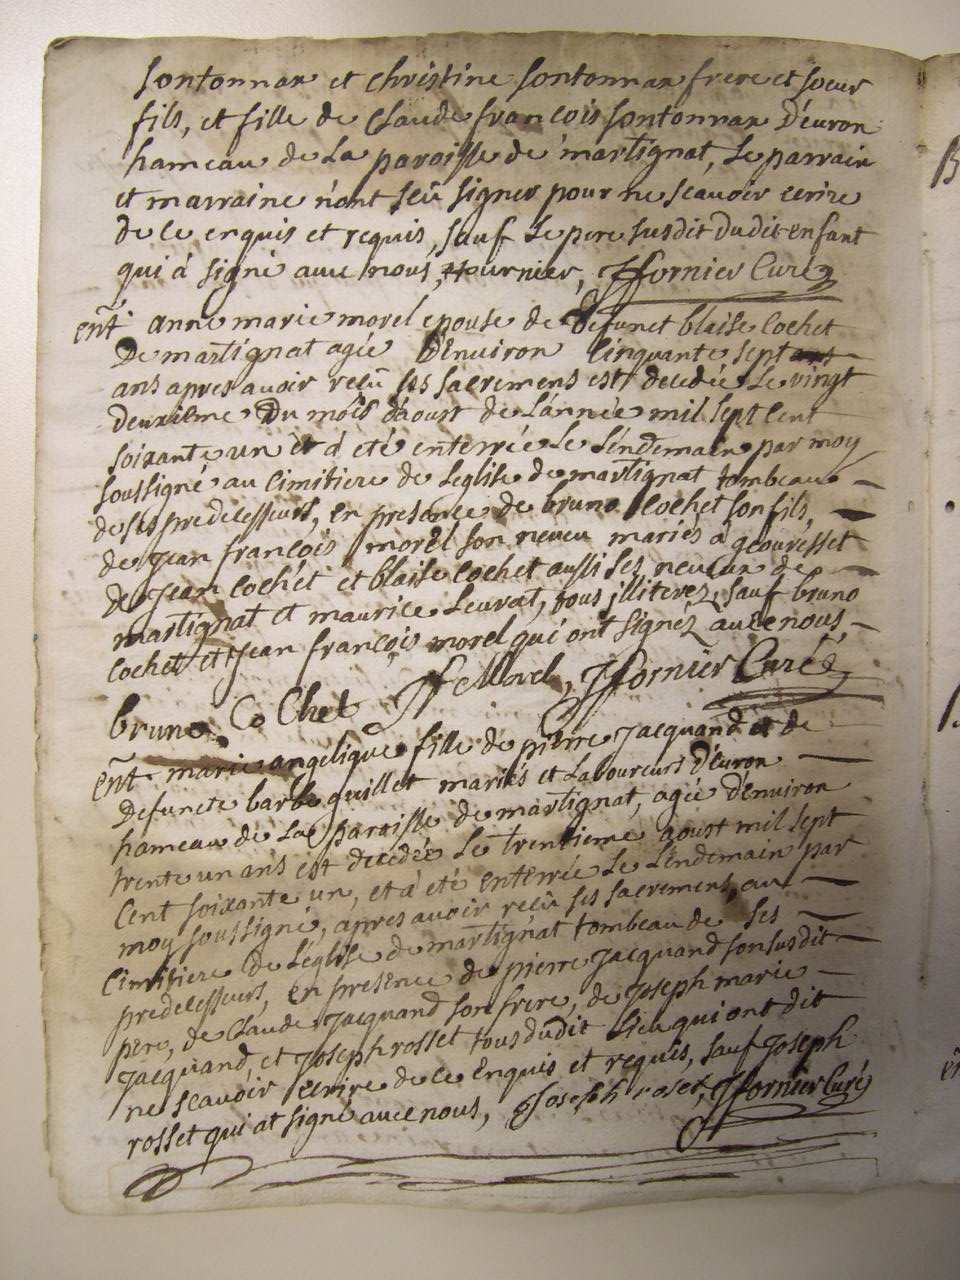 sontonnax et christine sontonnax frere et soeur
fils, et fille de Claude françois sontonnax d'évron
hameau de La paroisse de martignat, Le parrain
et marraine n'ont seû signer pour ne scavoir ecrire
de ce enquis et requis, sauf Le pere susdit dudit enfant
qui à signé avec nous, Hournier, JFfornier Curé
entt anne marie morel epouse de defunct blaise Cochet
de martignat agée D'Environ Cinquante sept ans
ans apres avoir reçû ses sacremens est decedée Le vingt
deuxième Du mois d'aoust de L'année mil sept cent
soixante un et à eté enterrée Le Lendemain par moy
soussigné au Cimitiere de L'eglise de martignat tombeau
de ses predecesseurs, en presence de bruno Cochet son fils,
de jean françois morel son neveu mariés à geovresset
de Jean Cochet et blaise Cochet aussi ses neveux de
martignat et maurice Leuvrat, tous illiterez, sauf bruno
Cochet et Jean françois morel qui ont signéz avec nous,
bruno Co Chet Jf Morel, JFfornier Curé
entt marie angelique fille de pierre Jacquand et de
defuncte barbe quillet mariés et Laboureurs d'évron
hameau de La paroisse de martignat, agée d'environ
trente un ans est decedée Le trentieme aoust mil sept
Cent soixante un, et à eté enterrée Le Lendemain par
moy soussigné, apres avoir reçû ses sacremens, au
Cimitiere de L'eglise de martignat tombeau de ses
predecesseurs, en presence de pierre Jacquand son susdit
pere, de Claude Jacquand son frere, de Joseph marie
Jacquand, et Joseph rosset tous dudit Lieu qui ont dit
ne scavoir ecrire de ce enquis et requis, sauf Joseph
rosset qui at signé avec nous, Joseph roset, JFfornier Curé